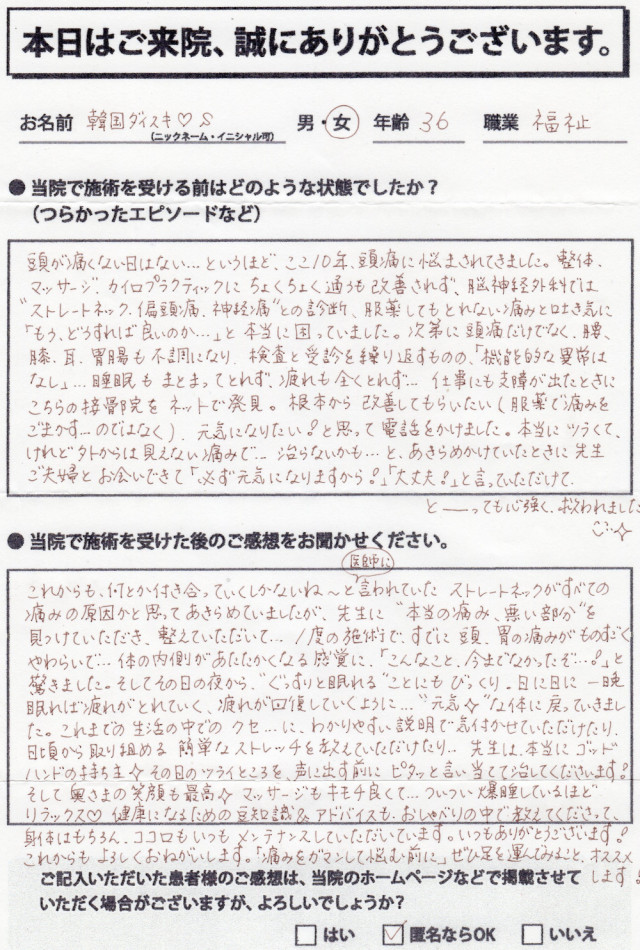 本日はご来院、誠にありがとうございます。
お名前 韓国ダイスキ♡S 男・女 年齢 36 職業 福祉
(ニックネーム・イニシャル可)
● 当院で施術を受ける前はどのような状態でしたか？
(つらかったエピソードなど)
頭が痛くない日はない…というほど、ここ10年、頭痛に悩まされてきました。整体、
マッサージ、カイロプラクティックにちょくちょく通うも改善されず、脳神経外科では
"ストレートネック、偏頭痛、神経痛"との診断、服薬してもとれない痛みと吐き気に
「もう、どうすれば良いのか…」と本当に困っていました。次第に頭痛だけでなく、腰、
膝、耳、胃腸も不調になり、検査と受診を繰り返すものの、「機能的な異常は
なし」…睡眠もまとまってとれず、疲れも全くとれず…仕事にも支障が出たときに
こちらの接骨院をネットで発見。根本から改善してもらいたい(服薬で痛みを
ごまかす…のではなく)、元気になりたい!と思って電話をかけました。本当にツラくて、
けれど外からは見えない痛みで…治らないかも…と、あきらめかけていたときに先生
ご夫婦とお会いできて「必ず元気になりますから!」「大丈夫!」と言っていただけて、
と——っても心強く、救われました
● 当院で施術を受けた後のご感想をお聞かせください。
医師に
これからも、何とか付き合っていくしかないね〜と言われていたストレートネックがすべての
痛みの原因かと思ってあきらめていましたが、先生に"本当の痛み、悪い部分"を
見つけていただき、整えていただいて…1度の施術で、すでに頭、胃の痛みがものすごく
やわらいで…体の内側があたたかくなる感覚に、「こんなこと、今までなかったぞ…!」と
驚きました。そしてその日の夜から、"ぐっすりと眠れる"ことにもびっくり。日に日に一晩
眠れば疲れがとれていく、疲れが回復していくように…"元気✧"な体に戻っていきまし
た。これまでの生活の中でのクセ…に、わかりやすい説明で気付かせていただけたり、
日頃から取り組める簡単なストレッチを教えていただけたり…先生は、本当にゴッド
ハンドの持ち主✧その日のツライところを、声に出す前にピタッと言い当てて治してくださいます!
そして奥さまの笑顔も最高✧マッサージもキモチ良くて…ついつい爆睡しているほど
リラックス♡健康になるための豆知識&アドバイスも、おしゃべりの中で教えてくださって、
身体はもちろん、ココロもいつもメンテナンスしていただいています。いつもありがとうございます!
これからもよろしくおねがいします。「痛みをガマンして悩む前に」ぜひ足を運んでみること、オススメ
します!
ご記入いただいた患者様のご感想は、当院のホームページなどで掲載させて
いただく場合がございますが、よろしいでしょうか？
□ はい ☑ 匿名ならOK □ いいえ